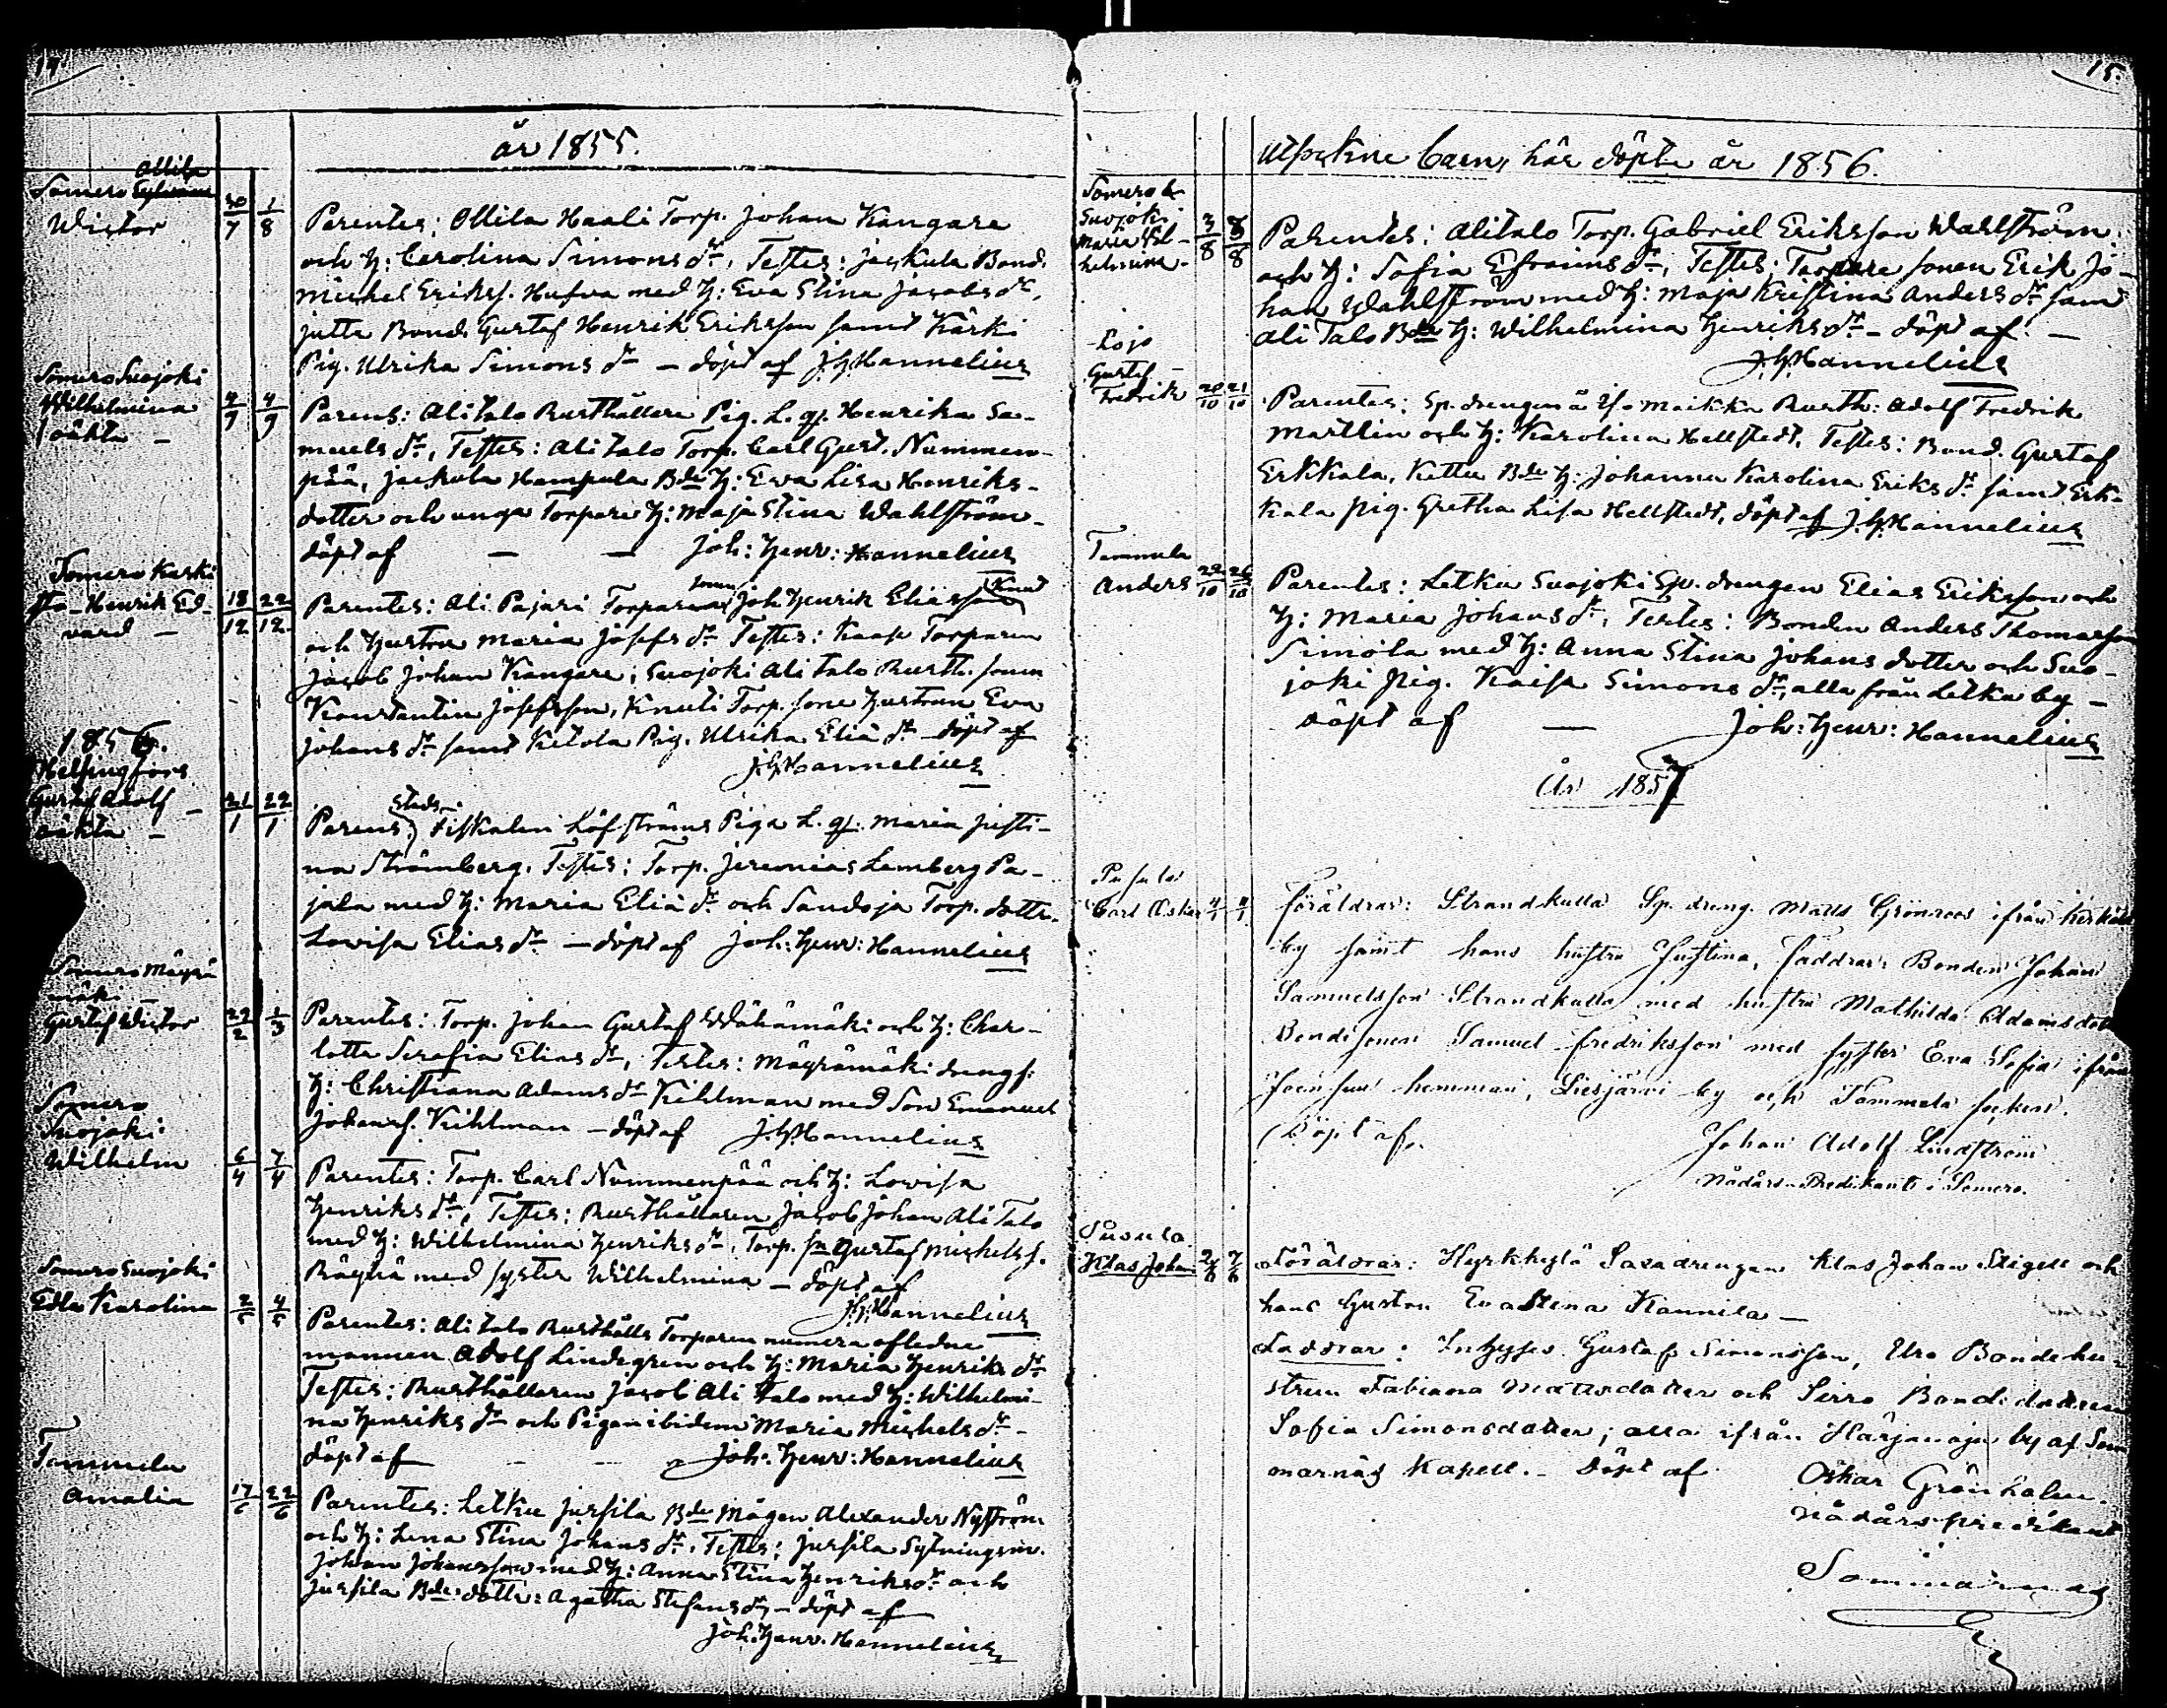 14.
år 1855.
Somero Ollila
Wictor
30/7 1/8
Parentes: Ollila Haali Torp. Johan Kangare
och H: Carolina Simons dr, Testes: Jaskula Bond.
Michel Erikss. Hufva med H: Eva Stina Jacobs dr,
Jutta Bond. Gustaf Henrik Eriksson samt Kärki
Pig. Ulrika Simons dr – döpt af J. H. Hannelius
Somero Suojoki
Wilhelmina
oäkta –
4/9 4/9
Parens: Alitalo Rusthållare Pig. L. qf. Henrika Sa-
muels dr, Testes: Ali talo Torp. Carl Gust. Nummen-
pää, Jaskula Hampula Bde H: Eva Lisa Henriks-
dotter och unga Torpare H: Maja Stina Wahlström –
döpt af — — Joh: Henr: Hannelius
Somero Kerki
Henrik Ed-
vard –
18/12 22/12
Parentes: Ali Pajari Torpare sonen Joh Henrik Eliasson Knut
och Hustru Maria Josefs dr Testes: Kaase Torparen
Jacob Johan Kangare, Suojoki Alitalo Rusth. sonen
Konstantin Josefsson, Knuti Torp. sone Hustrun Eva
Johans dr samt Kitola Pig. Ulrika Eliä dr – döpt af
J. H. Hannelius
1856.
Helsingfors
Gustaf Adolf –
oäkta –
21/1 22/1
Parens: Stads fiskalen Löfströms Piga L. qf. Maria Justi-
na Strömberg. Testes: Torp. Jeremias Lemberg Pa-
jala med H: Maria Eliä dr och Sandoja Torp. dottr.
Lovisa Elias dr – döpt af Joh: Henr: Hannelius
Somero Mäyrä
mäki –
Gustaf Wictor
29/2 1/3
Parentes: Torp. Johan Gustaf Wähämäki och H: Char-
lotta Serafia Elias dr, Testes: Mäyrämäki drengs:
H: Christiana Adams dr Kihlman med Son Emanuel
Johanss. Kihlman – döpt af J. H. Hannelius
Somero
Suojoki
Wilhelm
6/4 7/4
Parentes: Torp. Carl Nummenpää och H: Lovisa
Henriks dr, Testes: Rusthållaren Jacob Johan Ali Talo
med H: Wilhelmina Henriks dr, Torp. sn Gustaf Michelss.
Räyhä med syster Wilhelmina – döpt af
J. H. Hannelius
Somero Suojoki
Edla Karolina
2/5 4/5
Parentes: Ali talo Rusthålls Torparen numera aflidne
mannen Adolf Lindegren och H: Maria Henriks dr
Testes: Rusthållaren Jacob Ali Talo med H: Wilhelmi-
na Henriks dr och Pigan ibidem Maria Michels dr –
döpt af – – Joh: Henr: Hannelius
Tammela
Amalia
17/6 22/6
Parentes: Letku Jussila Bde Mågen Alexander Nyström
och H: Lena Stina Johans dr. Testes: Jussila Sytningsm.
Johan Johansson med H: Anna Stina Henriks dr och
Jussila Bde dotter: Agatha Stefans dr – döpt af
Joh: Henr. Hannelius
15.
Utsockne barn, här döpte år 1856.
Somero &
Suojoki
Maria Wil-
helmina –
3/8 8/8
Parentes: Alitalo Torp. Gabriel Eriksson Wahlström
och H: Sofia Efraims dr, Testes: Torpare sonen Erik Jo-
han Wahlström med H: Maja Kristina Anders dr samt
Ali Talo Bde H: Wilhelmina Henriks dr – döpt af: —
J. H. Hannelius
Lojo
Gustaf –
Fredrik
20/10 21/10
Parentes: Sp. drengen å Maikka Rusth: Adolf Fredrik
Martlin och H: Karolina Hellstedt. Testes: Bond. Gustaf
Erkkala, Kettu Bde H: Johanna Karolina Eriks dr samt Erk-
kala Pig. Gretha Lisa Hellstedt, döpt af J. H. Hannelius
Tammela
Anders
22/10 26/10
Parentes: Letku Suojoki Sp. drengen Elias Eriksson och
H: Maria Johans dr, Testes: Bonden Anders Thomasson
Simola med H: Anna Stina Johans dotter och Suo-
joki Pig. Kaisa Simons dr, alla från Letku by –
döpt af — Joh: Henr: Hannelius
År 1857
Pusula
Carl Oskar
4/1 4/1
Föräldrar: Strandkulla Sp. dreng. Matts Grönroos ifrån
by samt hans hustru Justina, Faddrar: Bonden Johan
Samuelsson Strandkulla med hustru Mathilda Adamsdotter
Bondesonen Samuel Fredriksson med syster Eva Sofia ifrån
Joensuu hemman, Liesjärvi by och Tammela socken.
Döpt af.
Johan Adolf Lindström
Nådårs-Predikant i Somero.
Pusula
Klas Johan
2/6 7/6
Föräldrar: Hyrkkylä Saxadrengen Klas Johan Stigell och
hans Hustru Eva Stena Kannila –
Faddrar: Inhyses Gustaf Simonsson, Uro Bondehu-
strun Fabiana Mattsdotter och Sirro Bondedottren
Sofia Simonsdotter; alla ifrån Härjanoja by af Som
marnäs Kapell. – Döpt af
Oskar Grönholm.
nådårspredikant
Sommarnäs